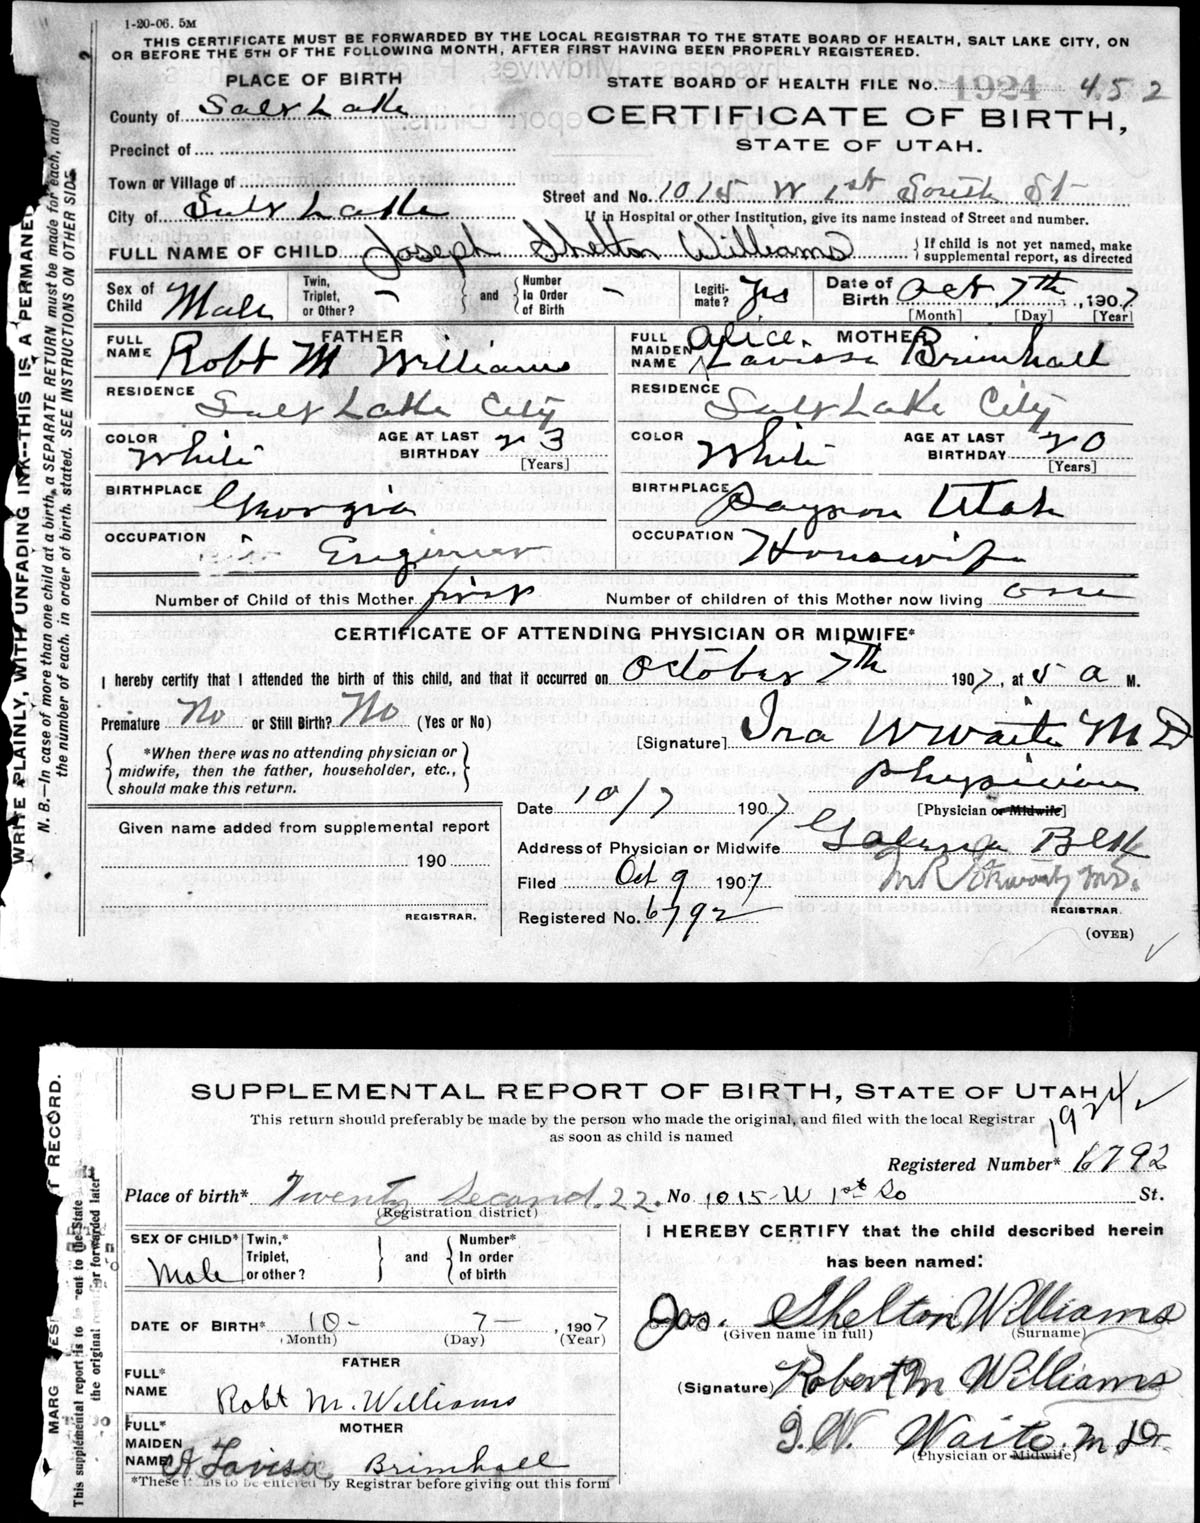 1-20-06. 5M
THIS CERTIFICATE MUST BE FORWARDED BY THE LOCAL REGISTRAR TO THE STATE BOARD OF HEALTH, SALT LAKE CITY, ON
OR BEFORE THE 5TH OF THE FOLLOWING MONTH, AFTER FIRST HAVING BEEN PROPERLY REGISTERED.
PLACE OF BIRTH
STATE BOARD OF HEALTH FILE No. 1924 452
County of Salt Lake
CERTIFICATE OF BIRTH,
STATE OF UTAH.
Precinct of
Town or Village of
Street and No. 1015 W 1st South St
City of Salt Lake
If in Hospital or other Institution, give its name instead of Street and number.
FULL NAME OF CHILD Joseph Shelton Williams
If child is not yet named, make
supplemental report, as directed
Sex of Child Male
Twin, Triplet, or Other? -
and
Number In Order of Birth -
Legiti-mate? Yes
Date of Birth Oct 7th, 1907
[Month] [Day] [Year]
FATHER
FULL NAME Robt M Williams
MOTHER
FULL MAIDEN NAME Alice Lavissa Brimhall
RESIDENCE Salt Lake City
RESIDENCE Salt Lake City
COLOR White
AGE AT LAST BIRTHDAY 23 [Years]
COLOR White
AGE AT LAST BIRTHDAY 20 [Years]
BIRTHPLACE Georgia
BIRTHPLACE Payson Utah
OCCUPATION Engineer
OCCUPATION Housewife
Number of Child of this Mother first
Number of children of this Mother now living one
CERTIFICATE OF ATTENDING PHYSICIAN OR MIDWIFE*
I hereby certify that I attended the birth of this child, and that it occurred on October 7th 1907, at 5 a M.
Premature No or Still Birth? No (Yes or No)
[Signature] Ira W Waite M D
*When there was no attending physician or
midwife, then the father, householder, etc.,
should make this return.
Physician
[Physician or Midwife]
Date 10/7 1907
Given name added from supplemental report
Address of Physician or Midwife Galena Blk
190
Filed Oct 9 1907
REGISTRAR.
REGISTRAR.
Registered No. 6792
(OVER)
WRITE PLAINLY, WITH UNFADING INK--THIS IS A PERMANENT
N. B.—In case of more than one child at a birth, a SEPARATE RETURN must be made for each, and
the number of each, in order of birth, stated. SEE INSTRUCTIONS ON OTHER SIDE
SUPPLEMENTAL REPORT OF BIRTH, STATE OF UTAH
This return should preferably be made by the person who made the original, and filed with the local Registrar
as soon as child is named
1924
Registered Number* 6792
Place of birth* Twenty Second. 22. No 1015 W 1st So St.
(Registration district)
SEX OF CHILD* Male
Twin,* Triplet, or other?
and
Number* In order of birth
I HEREBY CERTIFY that the child described herein
has been named:
DATE OF BIRTH* 10- 7- , 1907
(Month) (Day) (Year)
Jos. Shelton Williams
(Given name in full) (Surname)
FATHER
FULL* NAME Robt M. Williams
(Signature) Robert M Williams
MOTHER
FULL* MAIDEN NAME A Lavisa Brimhall
I. W. Waite, M Dr.
(Physician or Midwife)
*These items to be entered by Registrar before giving out this form
RECORD.
MARG
This supplemental report is to be sent to the State
the original or forwarded later